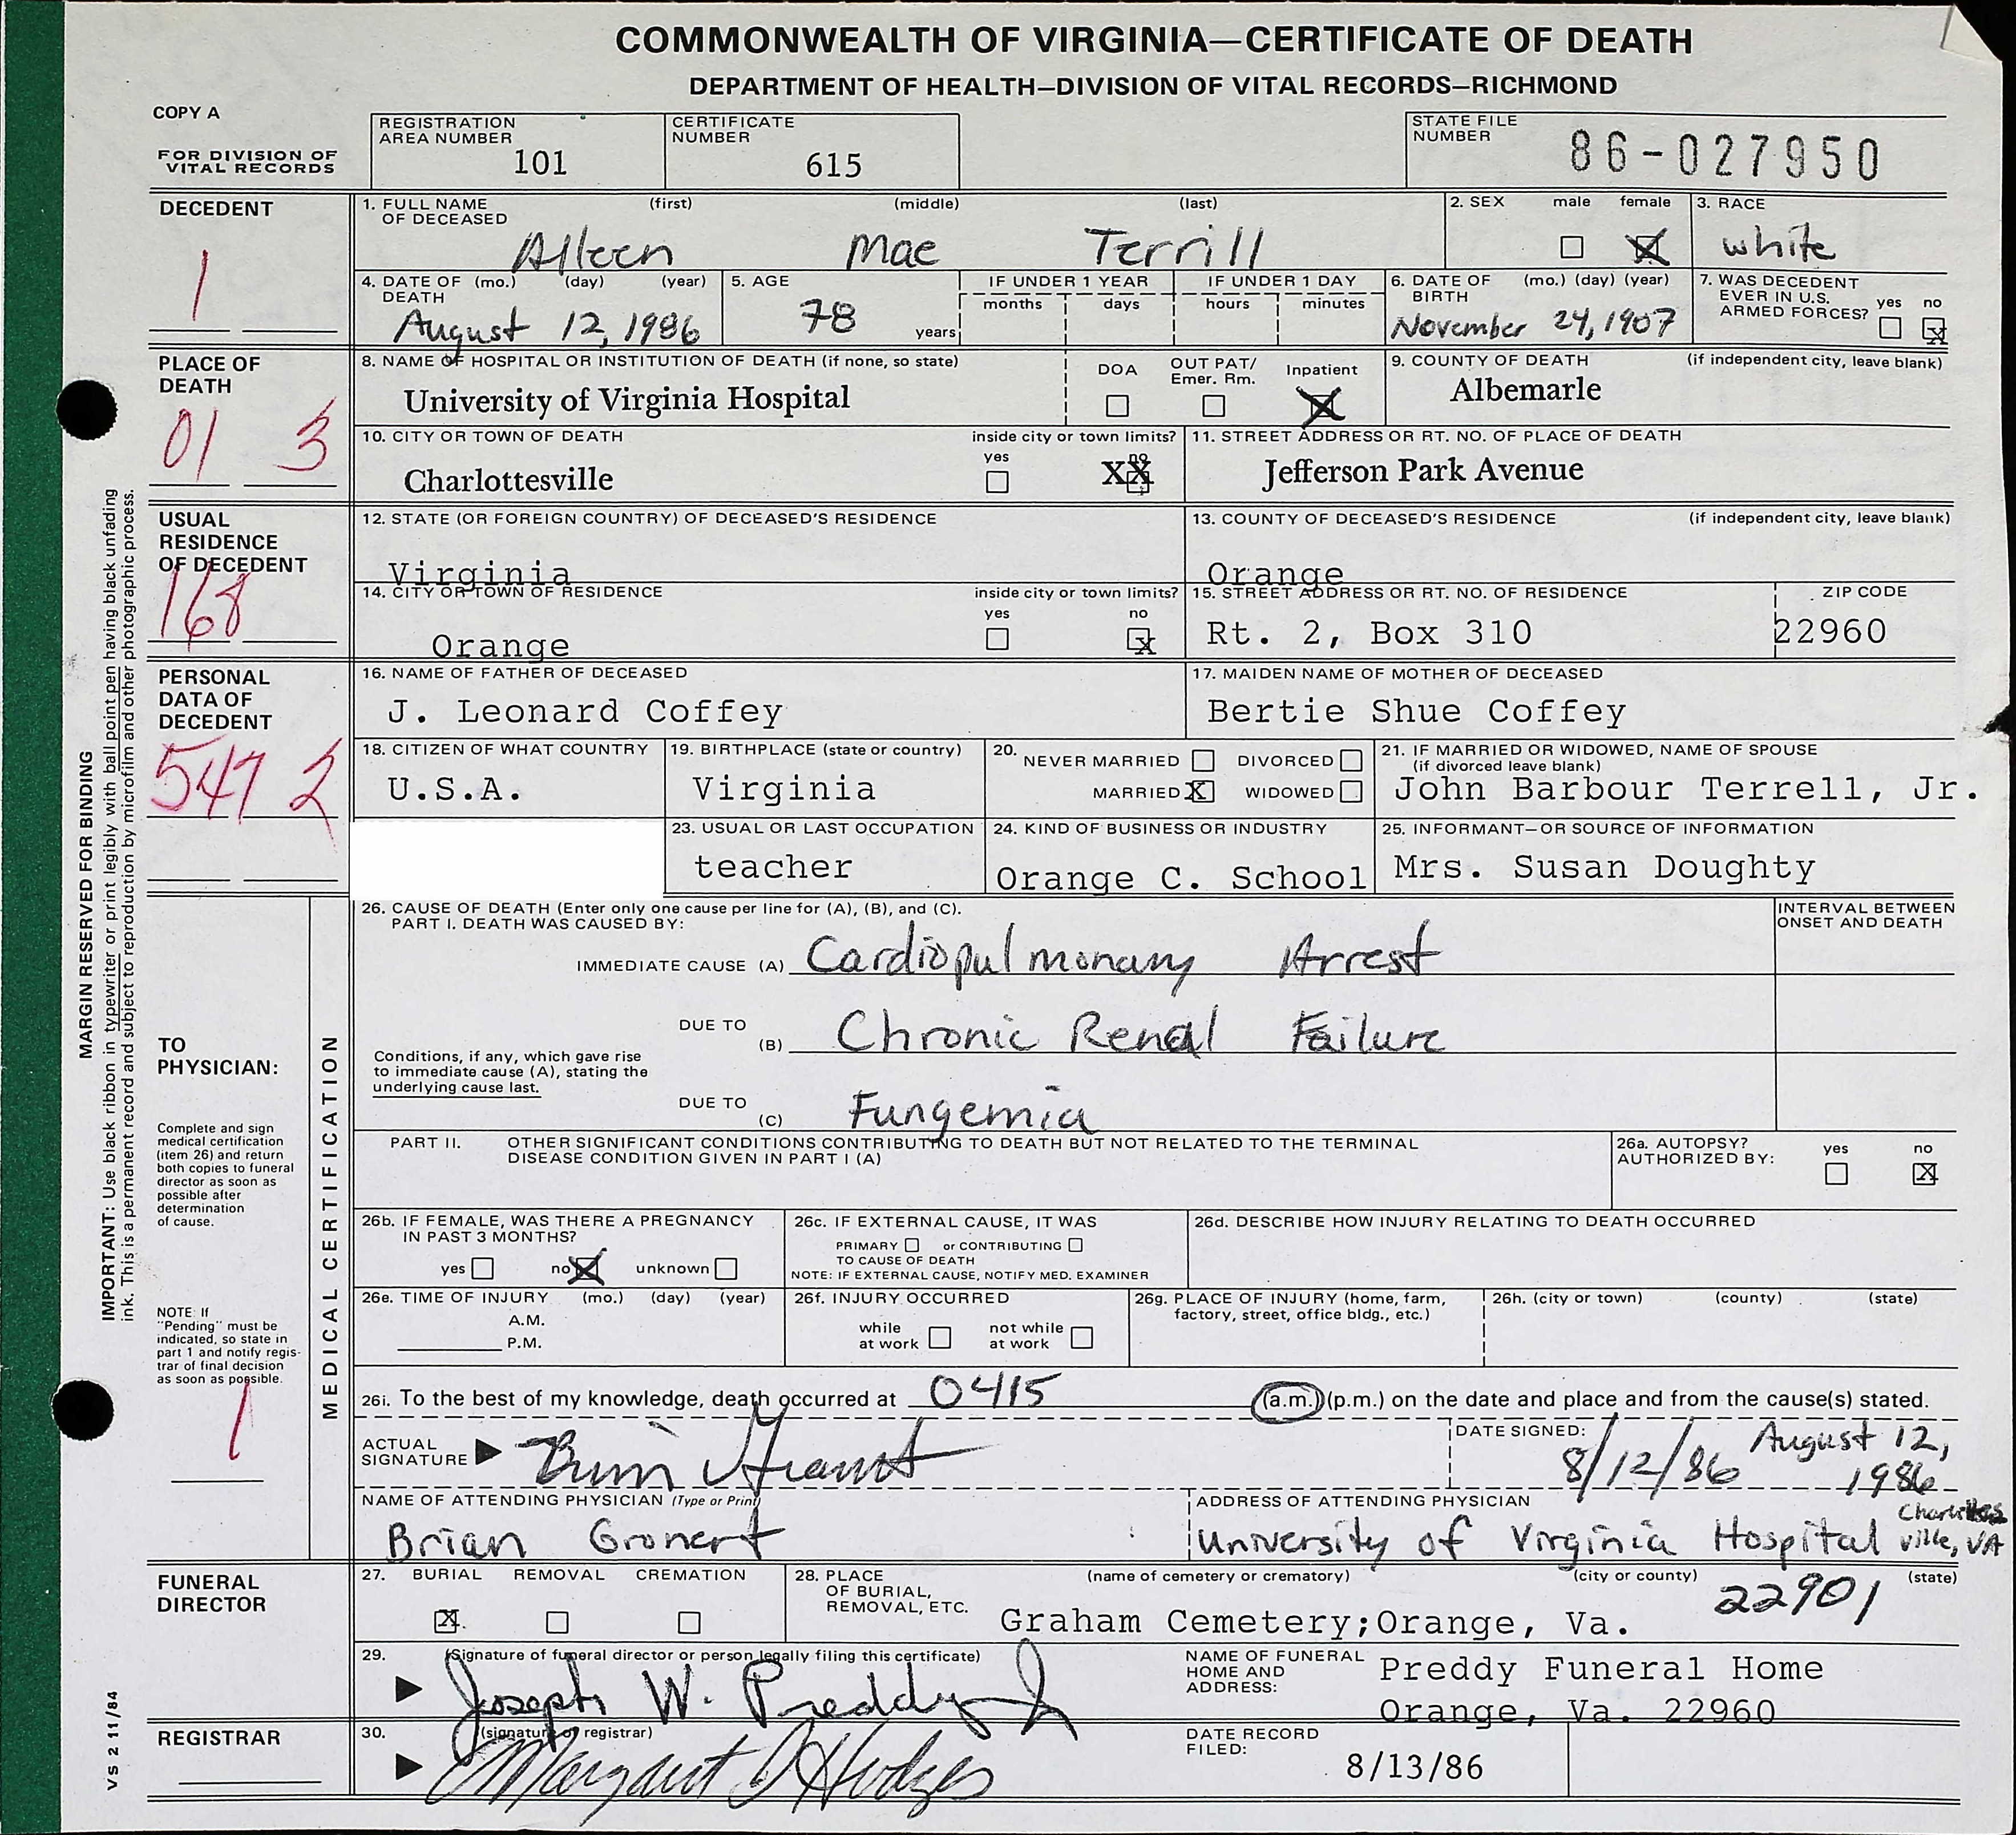 COMMONWEALTH OF VIRGINIA—CERTIFICATE OF DEATH
DEPARTMENT OF HEALTH—DIVISION OF VITAL RECORDS—RICHMOND
COPY A
FOR DIVISION OF
VITAL RECORDS
REGISTRATION
AREA NUMBER
101
CERTIFICATE
NUMBER
615
STATE FILE
NUMBER
86-027950
DECEDENT
1
1. FULL NAME
OF DECEASED
(first) (middle) (last)
Aileen Mae Terrill
2. SEX male female
3. RACE
white
4. DATE OF (mo.) (day) (year)
DEATH
August 12, 1986
5. AGE
78
years
IF UNDER 1 YEAR
months days
IF UNDER 1 DAY
hours minutes
6. DATE OF (mo.) (day) (year)
BIRTH
November 24, 1907
7. WAS DECEDENT
EVER IN U.S.
ARMED FORCES?
yes no
X
PLACE OF
DEATH
01 3
8. NAME OF HOSPITAL OR INSTITUTION OF DEATH (if none, so state)
University of Virginia Hospital
DOA OUT PAT/
Emer. Rm. Inpatient
9. COUNTY OF DEATH (if independent city, leave blank)
Albemarle
10. CITY OR TOWN OF DEATH
Charlottesville
inside city or town limits?
yes no
XX
11. STREET ADDRESS OR RT. NO. OF PLACE OF DEATH
Jefferson Park Avenue
USUAL
RESIDENCE
OF DECEDENT
168
12. STATE (OR FOREIGN COUNTRY) OF DECEASED'S RESIDENCE
Virginia
13. COUNTY OF DECEASED'S RESIDENCE (if independent city, leave blank)
Orange
14. CITY OR TOWN OF RESIDENCE
Orange
inside city or town limits?
yes no
X
15. STREET ADDRESS OR RT. NO. OF RESIDENCE
Rt. 2, Box 310
ZIP CODE
22960
PERSONAL
DATA OF
DECEDENT
547 2
16. NAME OF FATHER OF DECEASED
J. Leonard Coffey
17. MAIDEN NAME OF MOTHER OF DECEASED
Bertie Shue Coffey
18. CITIZEN OF WHAT COUNTRY
U.S.A.
19. BIRTHPLACE (state or country)
Virginia
20.
NEVER MARRIED DIVORCED
MARRIED X WIDOWED
21. IF MARRIED OR WIDOWED, NAME OF SPOUSE
(if divorced leave blank)
John Barbour Terrell, Jr.
23. USUAL OR LAST OCCUPATION
teacher
24. KIND OF BUSINESS OR INDUSTRY
Orange C. School
25. INFORMANT—OR SOURCE OF INFORMATION
Mrs. Susan Doughty
MARGIN RESERVED FOR BINDING
IMPORTANT: Use black ribbon in typewriter or print legibly with ball point pen having black unfading
ink. This is a permanent record and subject to reproduction by microfilm and other photographic process.
TO
PHYSICIAN:
Complete and sign
medical certification
(item 26) and return
both copies to funeral
director as soon as
possible after
determination
of cause.
NOTE: If
"Pending" must be
indicated, so state in
part 1 and notify regis-
trar of final decision
as soon as possible.
1
MEDICAL CERTIFICATION
26. CAUSE OF DEATH (Enter only one cause per line for (A), (B), and (C).
PART I. DEATH WAS CAUSED BY:
INTERVAL BETWEEN
ONSET AND DEATH
IMMEDIATE CAUSE (A) Cardiopulmonary Arrest
DUE TO
(B) Chronic Renal Failure
Conditions, if any, which gave rise
to immediate cause (A), stating the
underlying cause last.
DUE TO
(C) Fungemia
PART II. OTHER SIGNIFICANT CONDITIONS CONTRIBUTING TO DEATH BUT NOT RELATED TO THE TERMINAL
DISEASE CONDITION GIVEN IN PART I (A)
26a. AUTOPSY?
AUTHORIZED BY:
yes no
X
26b. IF FEMALE, WAS THERE A PREGNANCY
IN PAST 3 MONTHS?
yes no unknown
26c. IF EXTERNAL CAUSE, IT WAS
PRIMARY or CONTRIBUTING
TO CAUSE OF DEATH
NOTE: IF EXTERNAL CAUSE, NOTIFY MED. EXAMINER
26d. DESCRIBE HOW INJURY RELATING TO DEATH OCCURRED
26e. TIME OF INJURY (mo.) (day) (year)
A.M.
P.M.
26f. INJURY OCCURRED
while
at work
not while
at work
26g. PLACE OF INJURY (home, farm,
factory, street, office bldg., etc.)
26h. (city or town) (county) (state)
26i. To the best of my knowledge, death occurred at 0415 (a.m.) (p.m.) on the date and place and from the cause(s) stated.
ACTUAL
SIGNATURE
DATE SIGNED:
8/12/86 August 12,
1986
NAME OF ATTENDING PHYSICIAN (Type or Print)
Brian Gronert
ADDRESS OF ATTENDING PHYSICIAN
University of Virginia Hospital Charlottes
ville, VA
22901
FUNERAL
DIRECTOR
27. BURIAL REMOVAL CREMATION
X
28. PLACE
OF BURIAL,
REMOVAL, ETC.
(name of cemetery or crematory) (city or county) (state)
Graham Cemetery;Orange, Va.
29. (Signature of funeral director or person legally filing this certificate)
Joseph W. Preddy Jr
NAME OF FUNERAL
HOME AND
ADDRESS:
Preddy Funeral Home
Orange, Va. 22960
REGISTRAR
30. (signature of registrar)
Margaret J Hodges
DATE RECORD
FILED:
8/13/86
VS 2 11/84